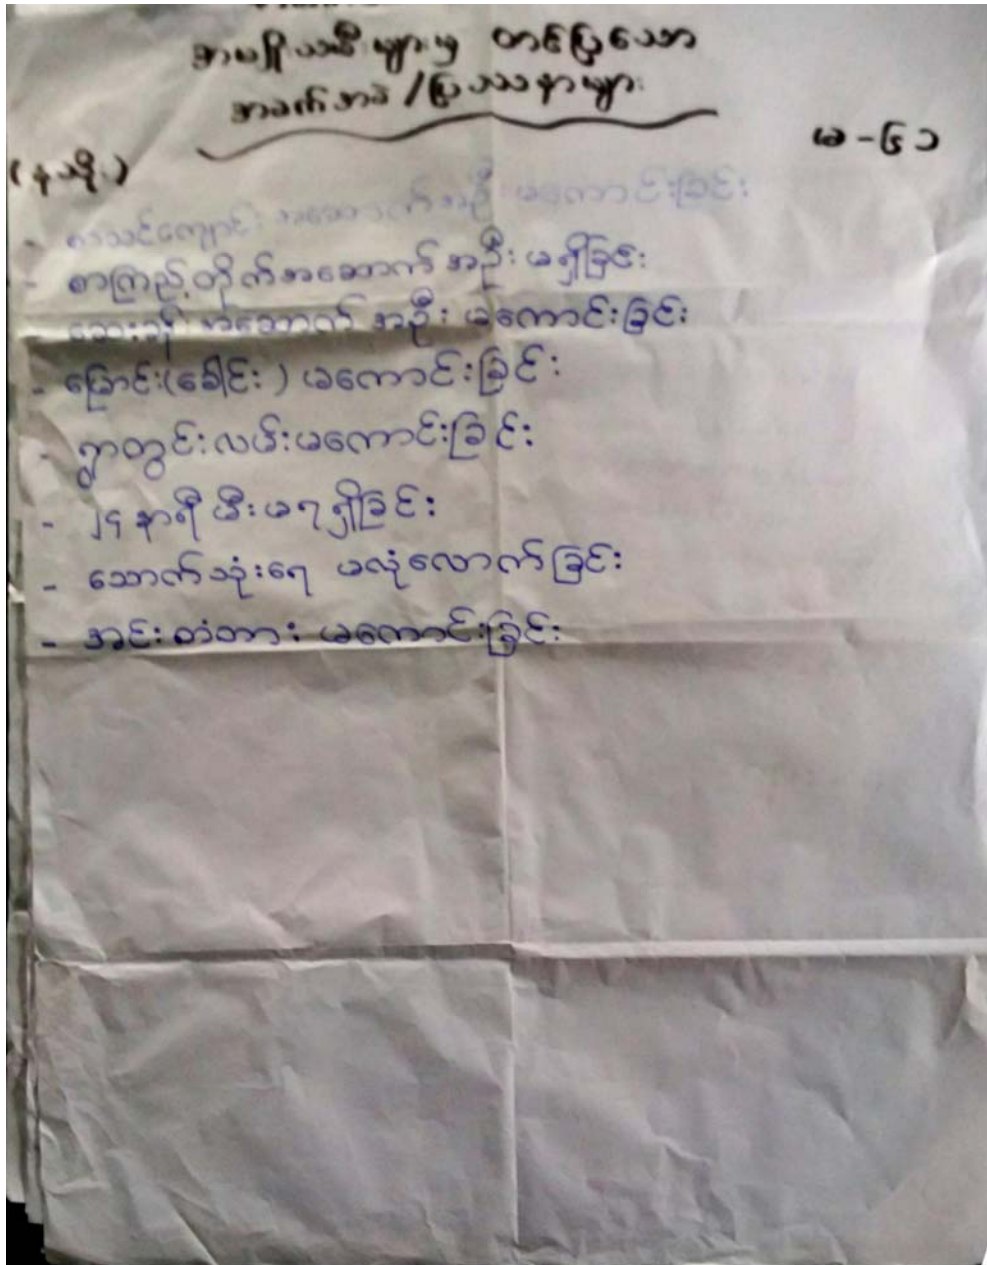 အမျိုးသမီးများမှ တင်ပြသော
အခက်အခဲ/ပြဿနာများ
မ-၆၁
- စာသင်ကျောင်း အဆောက်အဦး မကောင်းခြင်း
- စာကြည့်တိုက်အဆောက်အဦး မရှိခြင်း
- ဆေးခန်း အဆောက်အဦး မကောင်းခြင်း
- မြောင်း(ချောင်း) မကောင်းခြင်း
- ရွာတွင်းလမ်းမကောင်းခြင်း
- ၂၄ နာရီ မီးမရရှိခြင်း
- သောက်သုံးရေ မလုံလောက်ခြင်း
- အင်းတံတား မကောင်းခြင်း